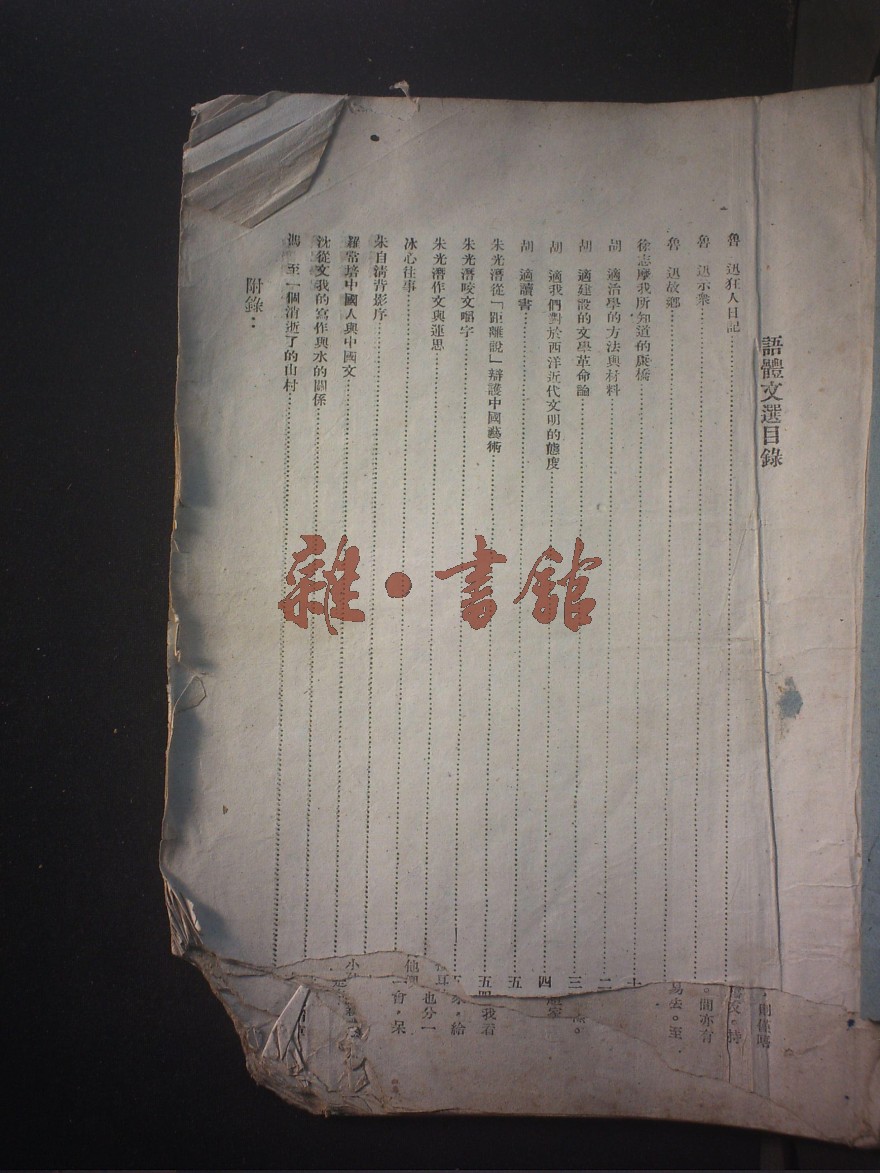 語體文選目錄
魯　迅狂人日記
魯　迅示衆
魯　迅故鄉
徐志摩我所知道的康橋
胡　適治學的方法與材料
胡　適建設的文學革命論
胡　適我們對於西洋近代文明的態度
胡　適讀書
朱光潛從「距離說」辯護中國藝術
朱光潛咬文嚼字
朱光潛作文與運思
冰心往事
朱自清背影序
羅常培中國人與中國文
沈從文我的寫作與水的關係
馮　至一個消逝了的山村
附錄：
雜·書館